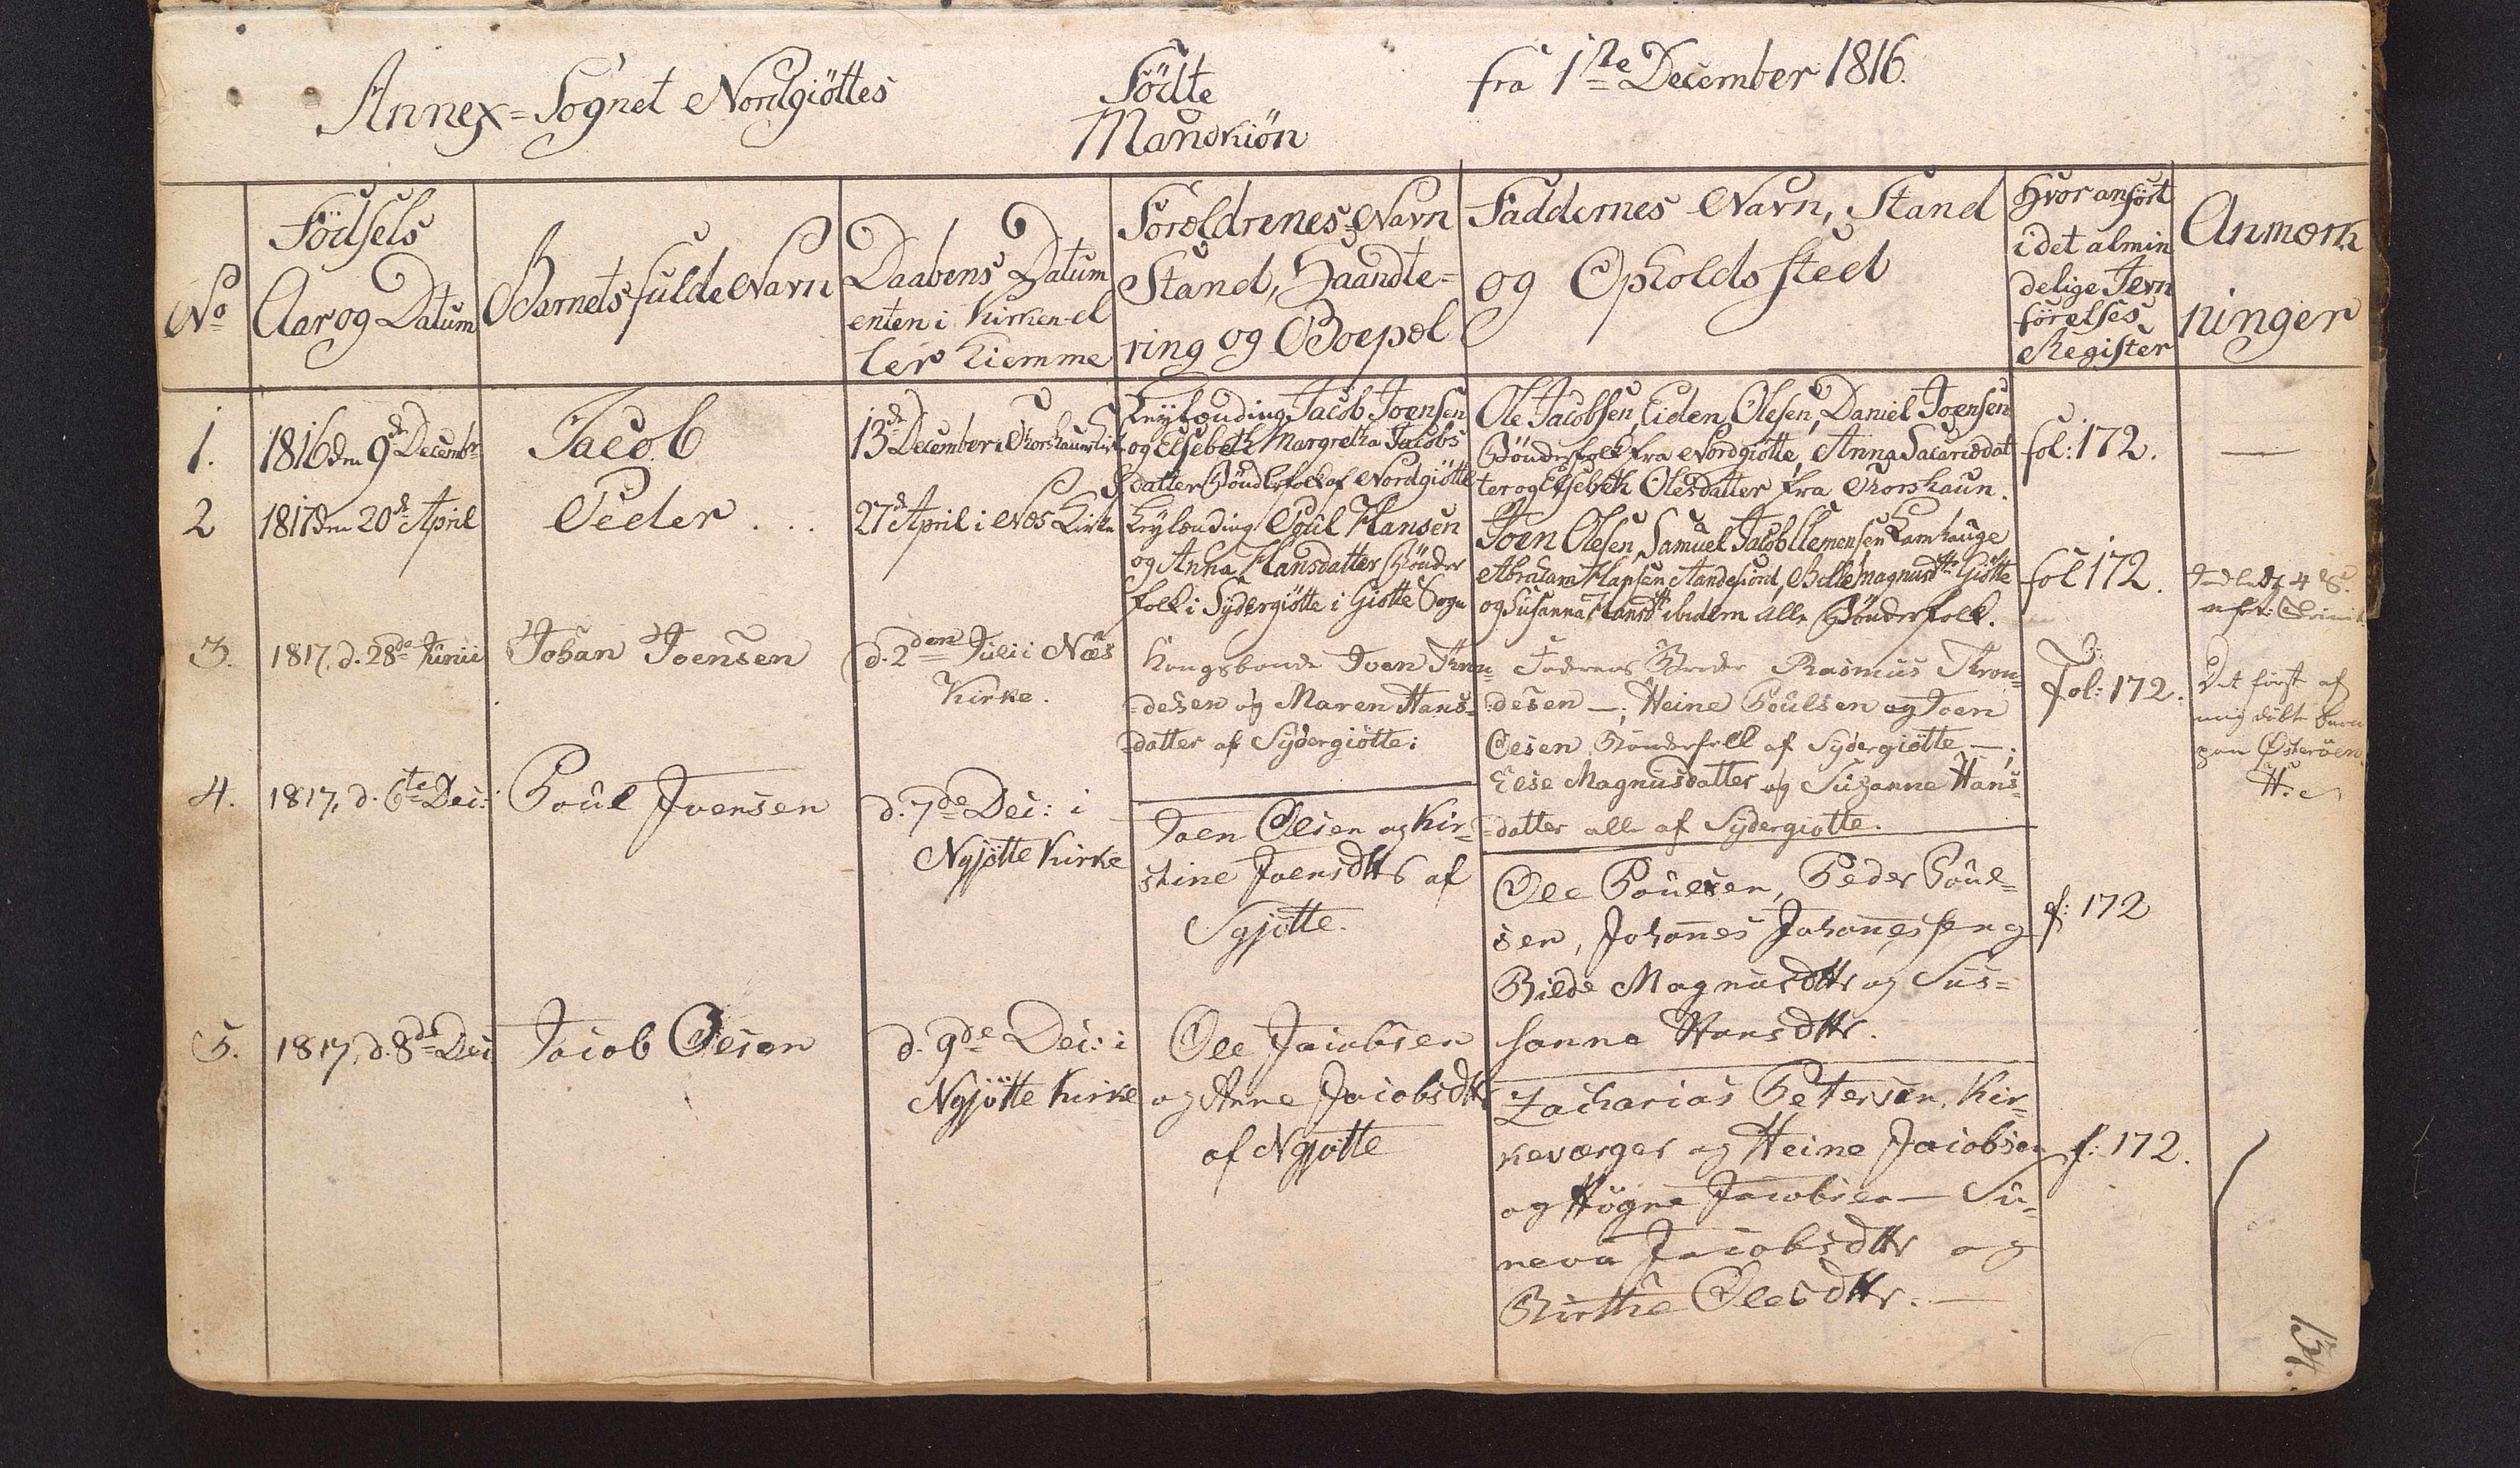 Annex=Sognet Nordgiöttes
Födte
Mandkiön
fra 1ste December 1816.
No
Födsels
Aar og Datum
Barnets fulde Navn
Daabens Datum
enten i Kirken el
ler hiemme
Foroldrenes Navn
Stand, Haandte=
ring og Boepol
Faddernes Navn, Stand
og Opholds sted
Hvor anfört
i det almin
delige Jevn
förelses
Register
Anmoerk
ninger
1.
1816 den 9de Decembr
Jacob
13de December i Thorshauns Kirke
Leylænding Jacob Joensen
og Elsebeth Margretha Jacobs
datter Bönderfolk af Nordgiötte
Ole Jacobsen, Eiden Olesen, Daniel Joensen
Bönderfolk fra Nordgiötte, Anna Sacariædat
ter og Elsebeth Olesdatter fra Thorshaun.
fol: 172.
—
2
1817 den 20de April
Peder . . .
27de April i Næs Kirke
Leylænding Poul Hansen
og Anna Hansdatter Bönder
folk i Sydergiötte i Giötte Sogn
Joen Olesen, Samuel Jacob Clemensen Lamhauge
Abraham Hansen Andefiord, Bille Magnusdtr Giötte
og Susanna Hansdtr ibidem alle Bönderfolk.
fol 172.
3.
1817, d. 28de Junii
Johan Joensen
d. 2den Juli i Næs
Kirke.
Kongsbonde Joen Thron=
=desen og Maren Hans=
=datter af Sydergiötte;
Faderens Broder Rasmus Thron=
=desen —; Heine Poulsen og Joen
Olsen Bönderfolk af Sydergiötte —;
Else Magnusdatter og Susanne Hans=
=datter alle af Sydergiötte.
Fol: 172.
Det förste af
mig döbte Barn
paa Österöen
H.
4.
1817, d. 6te Dec:
Poul Joensen
d. 7de Dec: i
Ngjötte Kirke
Joen Olsen og Kir=
stine Joensdttr af
Sgjötte.
Ole Poulsen, Peder Poul=
sen, Johannes Johannessen og
Bilde Magnusdttr og Sus=
sanne Hansdttr.
f: 172
5.
1817, d. 8de Dec
Jacob Olsen
d. 9de Dec: i
Ngjötte Kirke
Ole Jacobsen
og Anne Jacobsdttr
af Ngjötte
Zacharias Petersen, Kir=
keværger og Heine Jacobsen
og Högne Jacobsen — Su=
neva Jacobsdttr og
Birthe Olesdttr. —
f: 172.